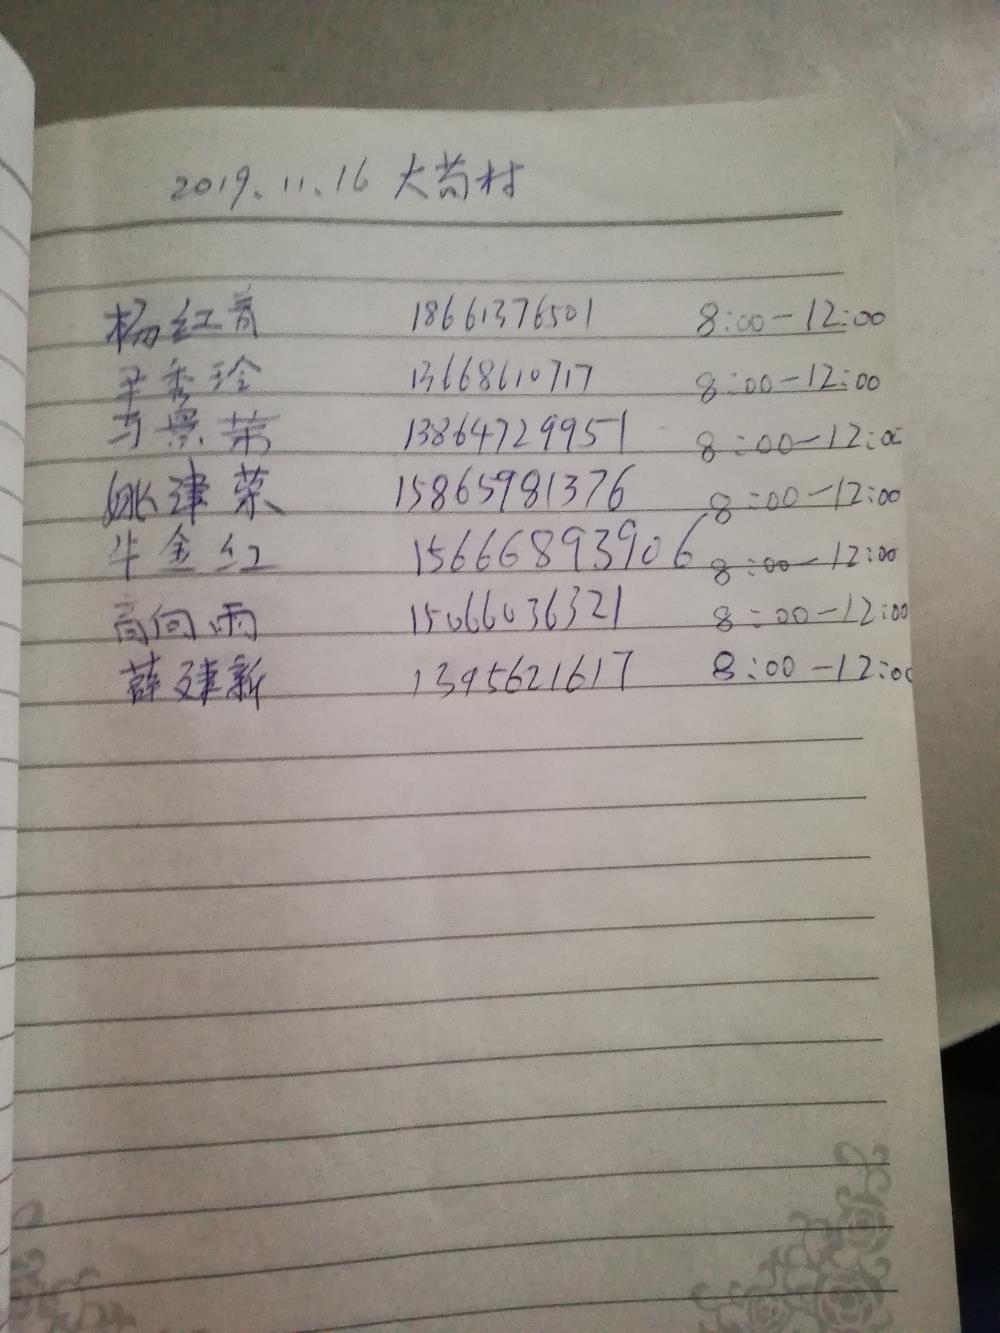 2019.11.16 大苟村
杨红青 18661376501 8:00-12:00
辛秀玲 13668610717 8:00-12:00
马景荣 13864729951 8:00-12:00
姚津荣 15865981376 8:00-12:00
牛金红 15666893906 8:00-12:00
高向雨 15066036321 8:00-12:00
薛建新 1395621617 8:00-12:00